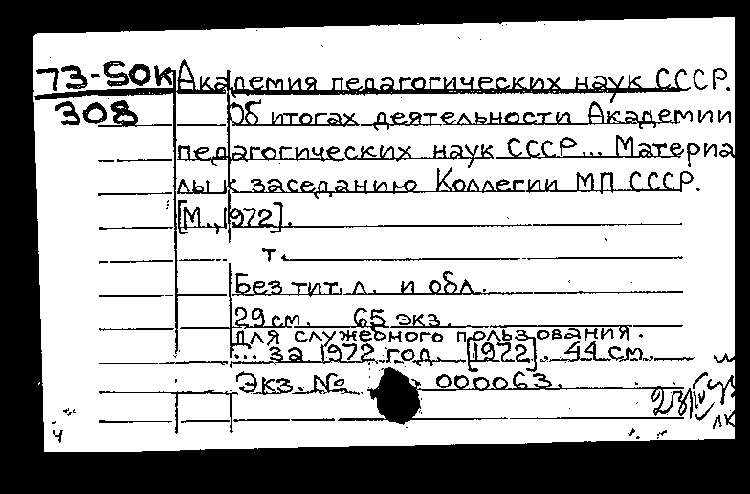 73-5ОК Академия педагогических наук СССР.
308 Об итогах деятельности Академии
педагогических наук СССР... Материа
лы к заседанию Коллегии МП СССР.
[М., 1972].
т.
Без тит. л. и обл.
29 см. 65 экз.
Для служебного пользования.
... за 1972 год. [1972]. 44 см.
Экз. № 000063.
ЛК
Ч